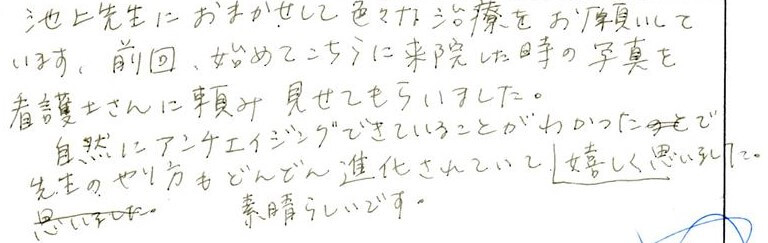 池上先生におまかせして色々な治療をお願いして
います。前回、始めてこちらに来院した時の写真を
看護士さんに頼み見せてもらいました。
自然にアンチエイジングできていることがわかったので
先生のやり方もどんどん進化されていて、嬉しく思いました。
思いました。 素晴らしいです。